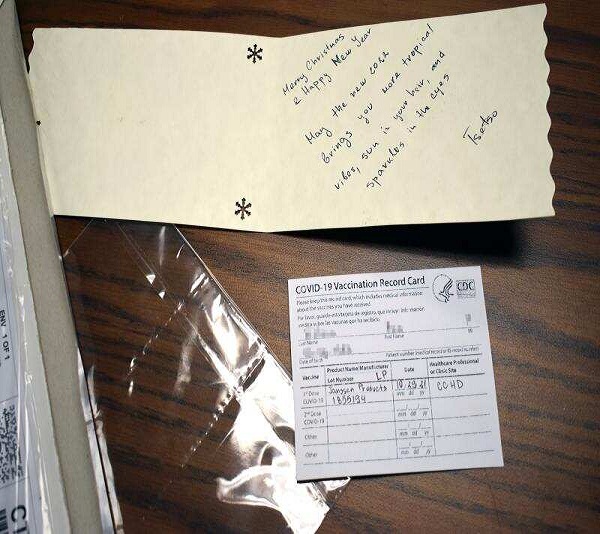 Merry Christmas
& Happy New Year
May the new 2022
brings you more tropical
vibes, sun in your hair, and
sparkles in the eyes
Tsetso
COVID-19 Vaccination Record Card
CDC
Please keep this record card, which includes medical information
about the vaccines you have received.
Por favor, guarde esta tarjeta de registro, que incluye información
médica sobre las vacunas que ha recibido.
Last Name
MI
Date of birth Patient number (medical record or IIS record number)
Vaccine Product Name/Manufacturer Date Healthcare Professional
Lot Number or Clinic Site
LP
1st Dose Janssen Products 10 29 21 CCHD
COVID-19 mm dd yy
2nd Dose
COVID-19 mm dd yy
Other
mm dd yy
Other
mm dd yy
ENV 1 OF 1